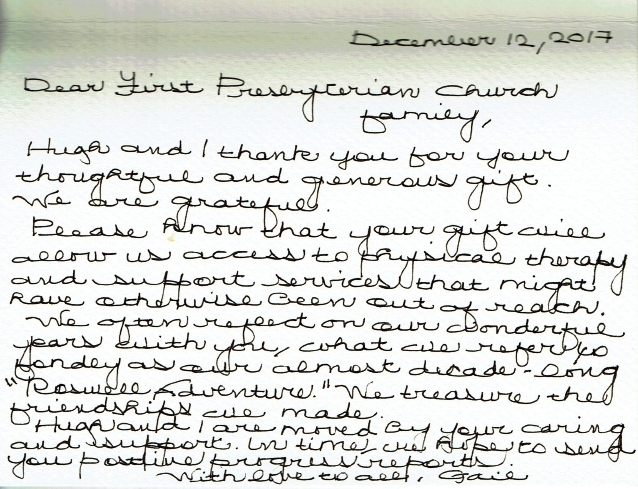 December 12, 2017
Dear First Presbyterian Church
family,
Hugh and I thank you for your
thoughtful and generous gift.
We are grateful.
Please know that your gift will
allow us access to physical therapy
and support services that might
have otherwise been out of reach.
We often reflect on our wonderful
years with you, what we refer to
fondly as our almost decade-long
"Roswell Adventure." We treasure the
friendships we made.
Hugh and I are moved by your caring
and support. In time, we hope to send
you positive progress reports.
With love to all, Gail